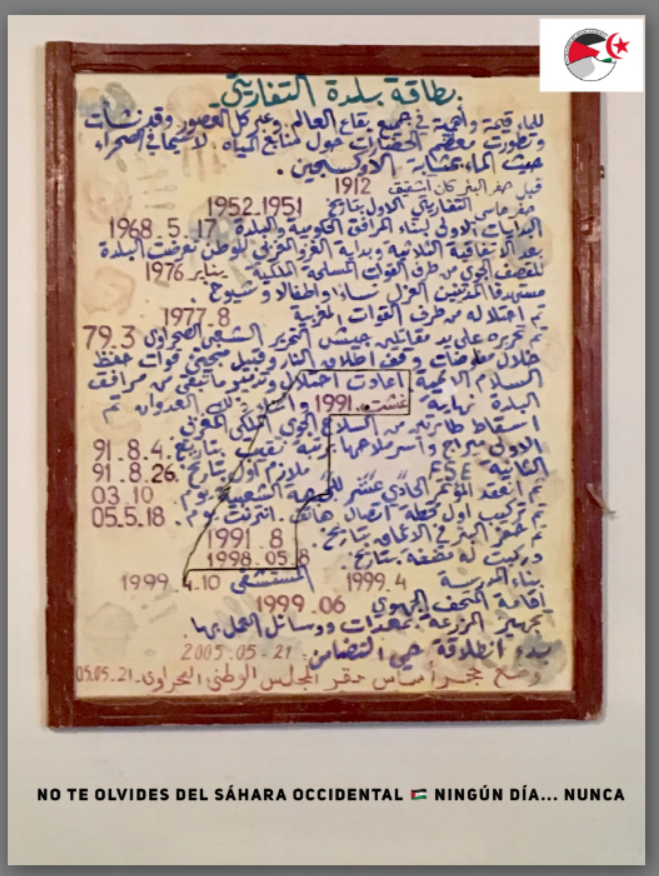 بطاقة بلدة التفاريتي
للماء قيمة وأهمية في جميع بقاع العالم وعبر كل العصور وقد نشأت
وتطورت معظم الحضارات حول منابع المياه. لاسيما في الصحراء
حيث الماء بمثابة الأوكسجين.
قبل حفر البئر كان 1912
حفر حاسي التفاريتي الأول بتاريخ 1951_1952
البدايات الأولى لبناء المرافق الحكومية والبلدة 17_5_1968
بعد الاتفاقية الثلاثية وبداية الغزو المغربي للوطن تعرضت البلدة
للقصف الجوي من طرف القوات المسلحة الملكية يناير 1976
مستهدفا المدنيين العزل نساءا واطفالا وشيوخ.
تم احتلاله من طرف القوات المغربية 8_1977
تم تحريره على يد مقاتلي جيش التحرير الشعبي الصحراوي 3_79
خلال مفاوضات وقف اطلاق النار وقبيل مجيئ قوات حفظ
السلام الاممية اعادت احتلال وتدمير ماتبقى من مرافق
البلدة نهاية غشت 1991 ذلك العدوان تم
اسقاط طائرتين من السلاح الجوي الملكي المغربي
الاولى ميراج وأسر ملاحها برتبة نقيب بتاريخ 4.8.91
الثانية F5E ملازم اول بتاريخ 26.8.91
تم انعقد المؤتمر الحادي عشر للجبهة الشعبية يوم 10.03
تم تركيب اول محطة اتصال هاتف. انترنت يوم 18.5.05
تم حفر البئر في الاعماق بتاريخ. 8_1991
وركبت له مضخة بتاريخ. 8_05_1998
بناء المدرسة 4_1999 المستشفى 10_4_1999
اقامة المتحف الجهوي 06_1999
تجهيز الزرعة بمعدات ووسائل العمل بها.
بدء انطلاقة حي التضامن: 21-05-2005
وضع حجر أساس مقر المجلس الوطني الصحراوي 21_05_05
NO TE OLVIDES DEL SÁHARA OCCIDENTAL NINGÚN DÍA... NUNCA